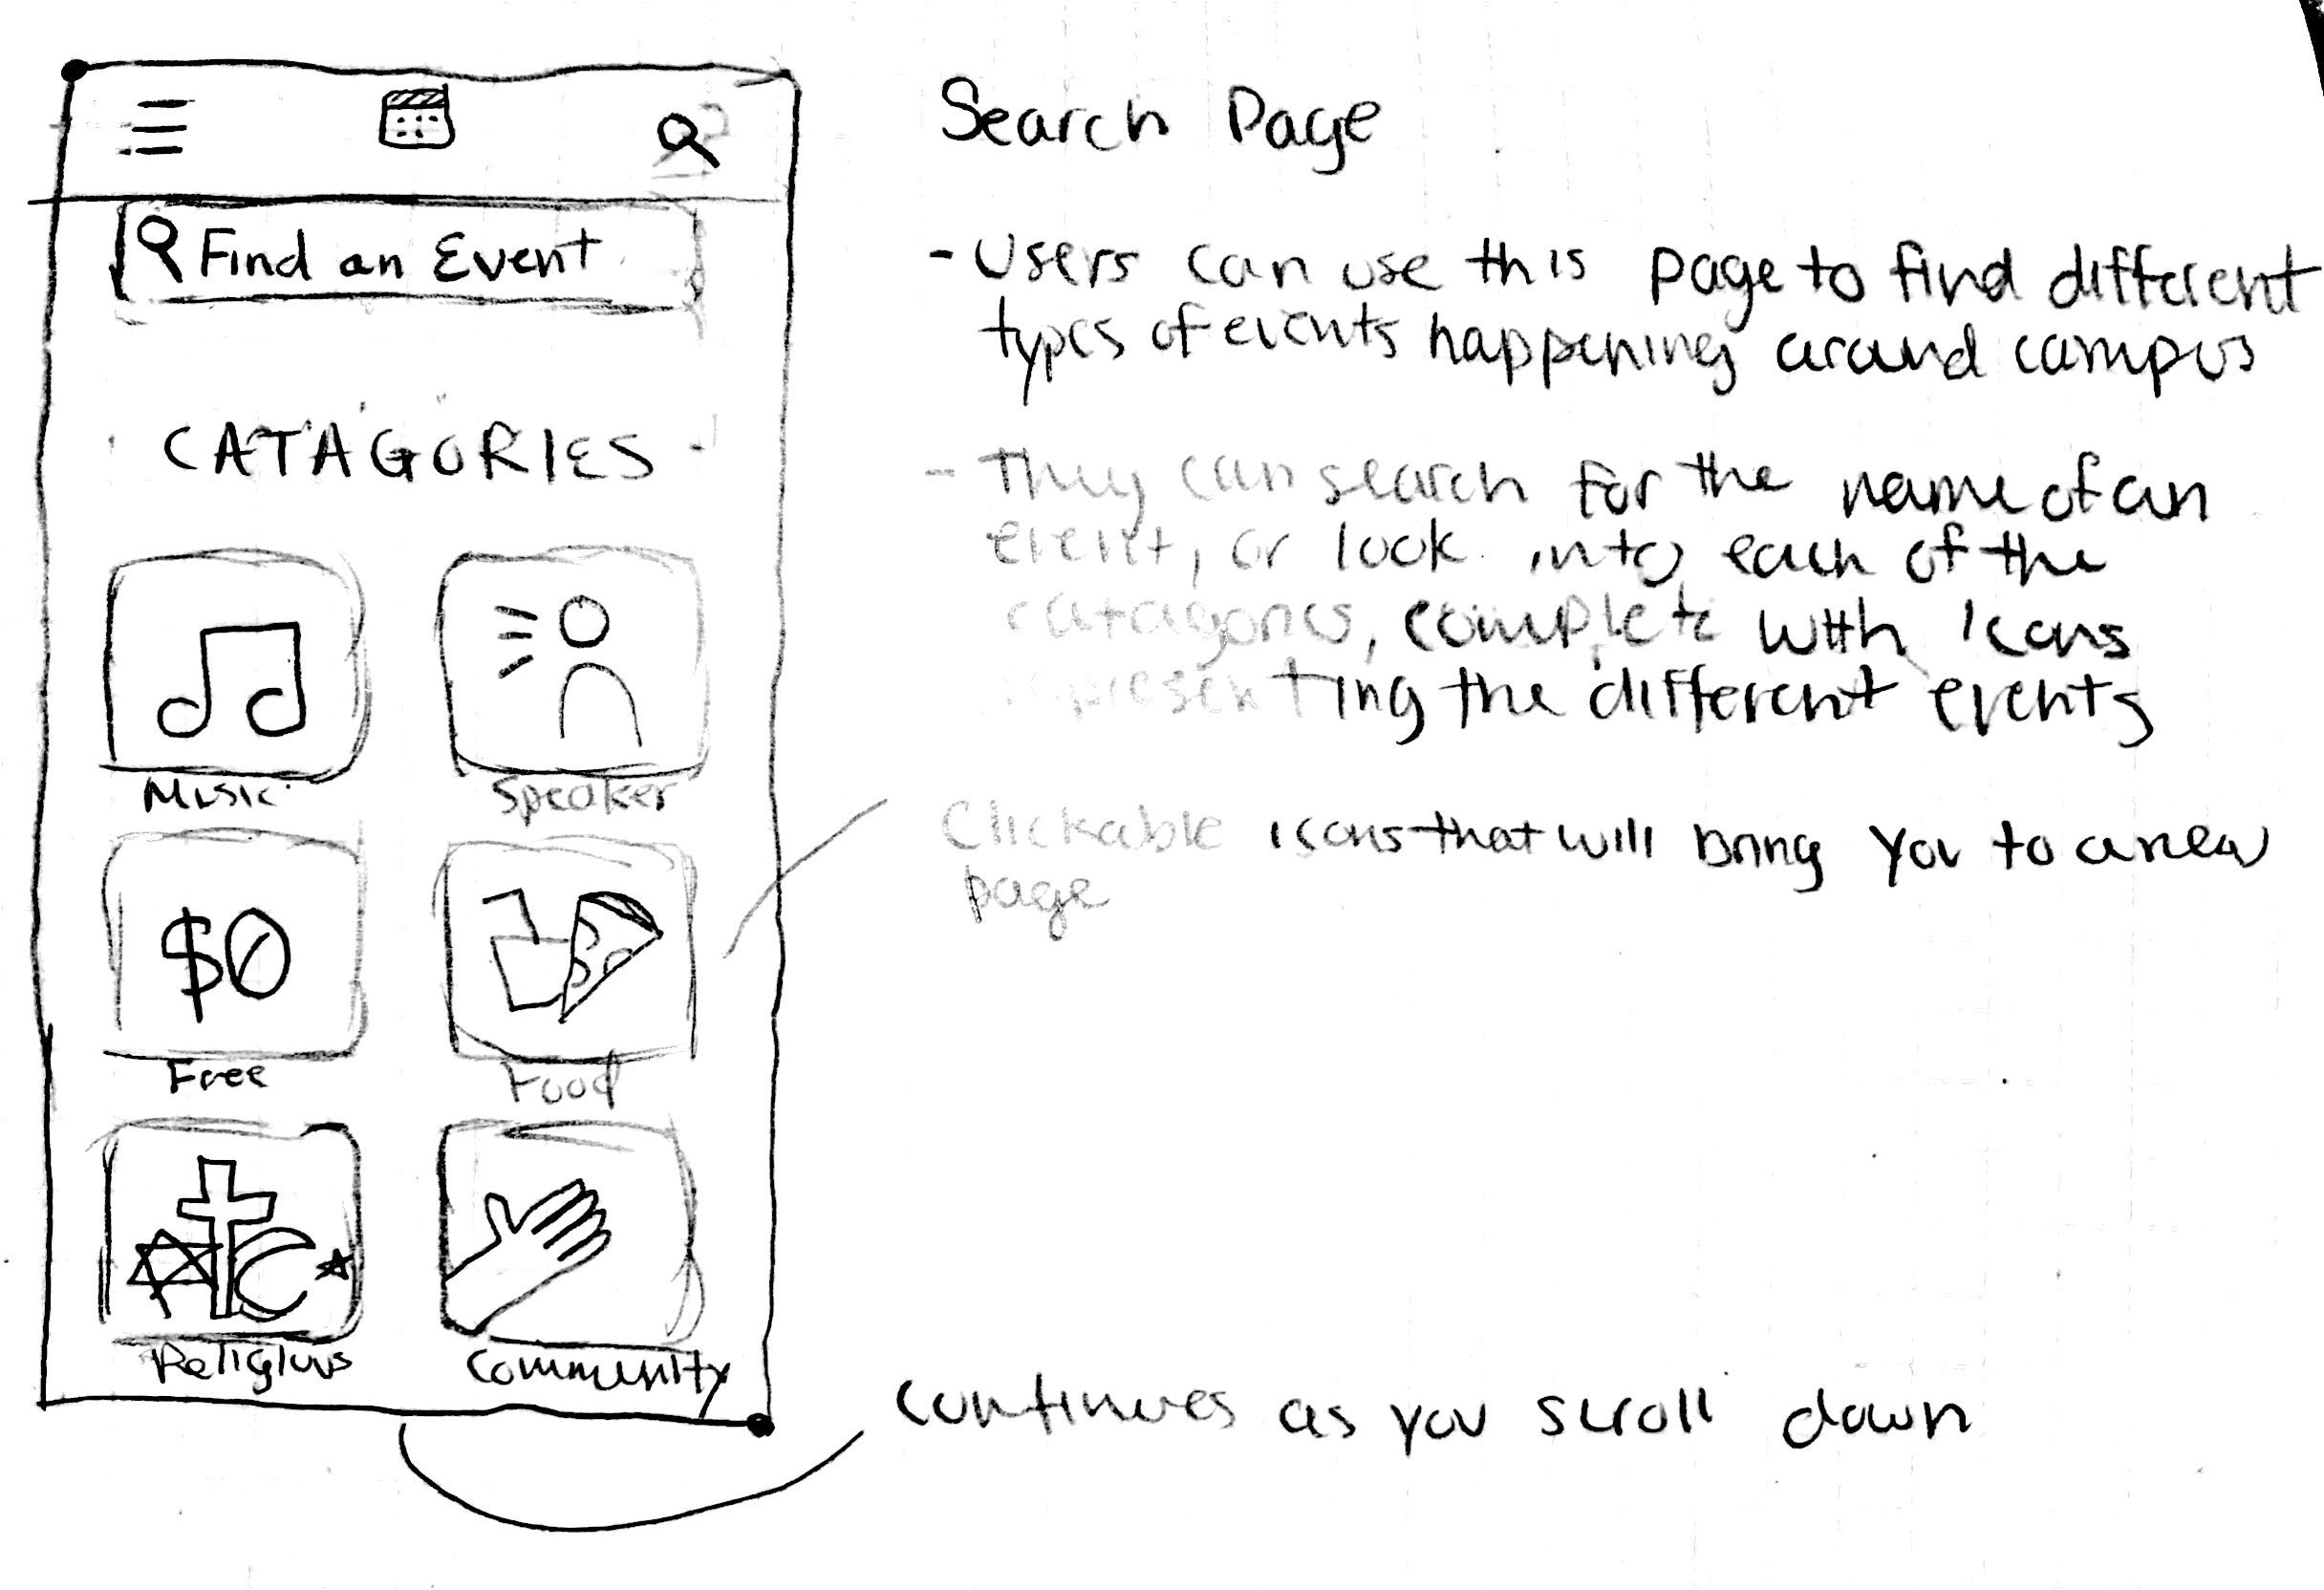 Search Page
Find an Event
- Users can use this page to find different
types of events happening around campus
CATAGORIES
- They can search for the name of an
event, or look into each of the
catagories, complete with icons
representing the different events
Music
Speaker
Clickable icons that will bring you to a new
page
$0
Free
Food
Religious
Community
continues as you scroll down